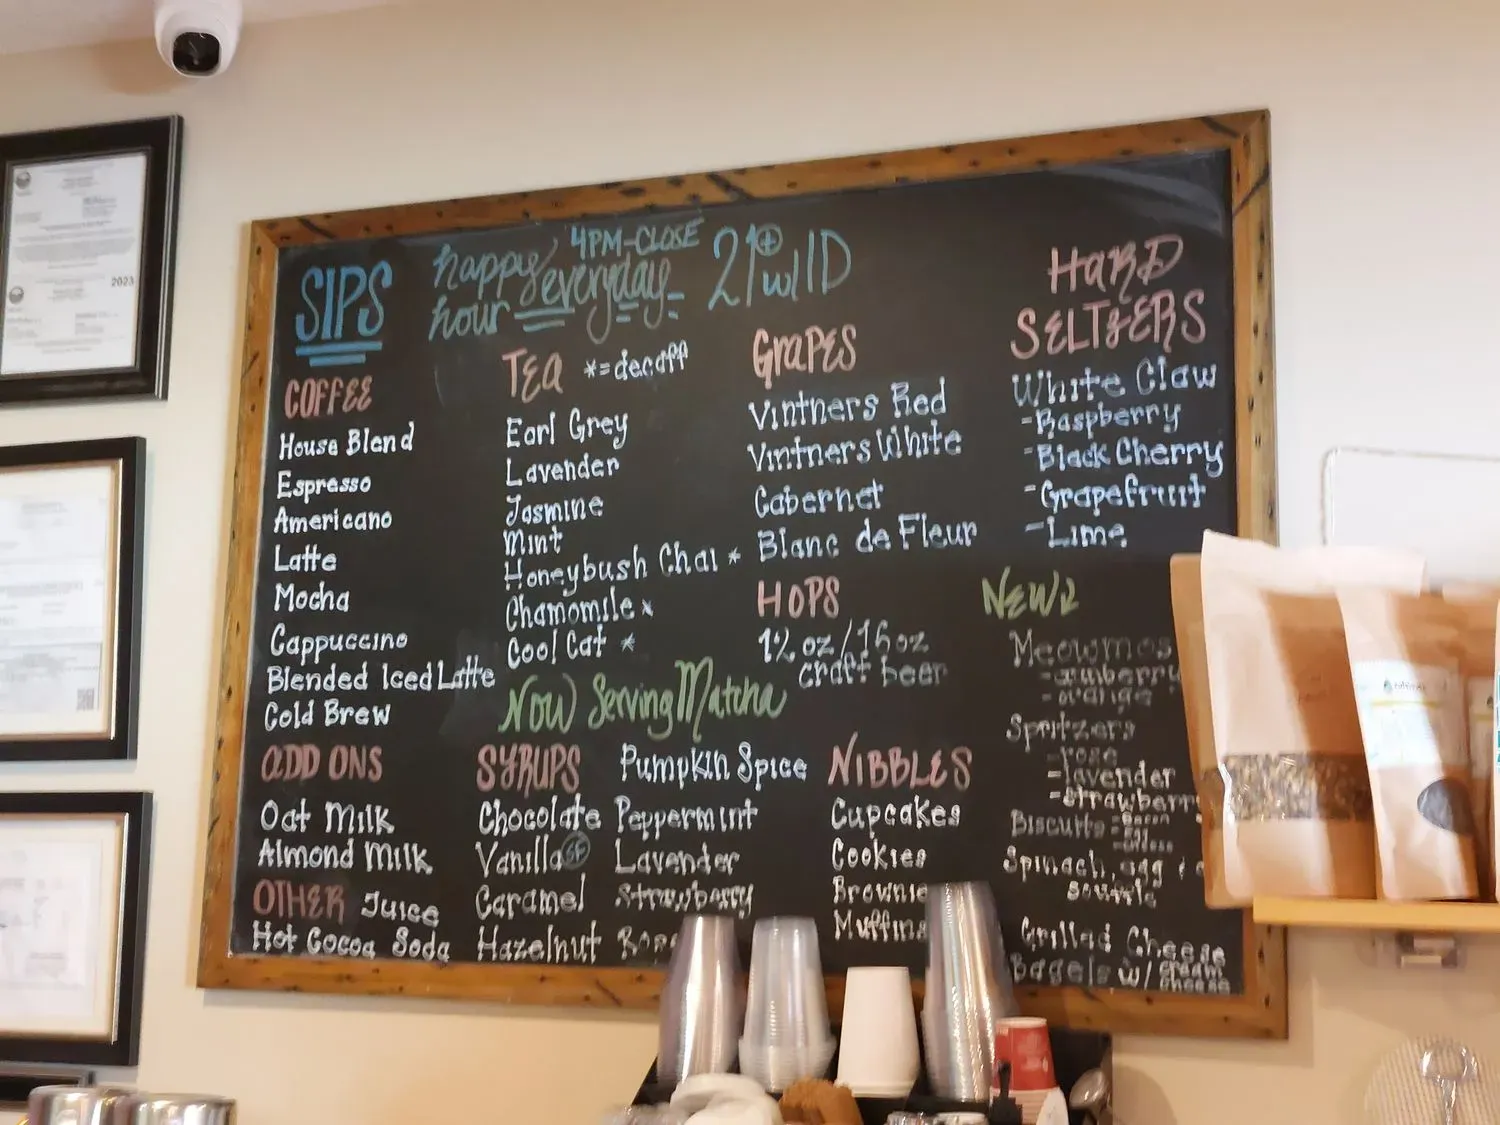 SIPS
happy hour everyday
4PM-CLOSE
21+ w/ID
COFFEE
House Blend
Espresso
Americano
Latte
Mocha
Cappuccino
Blended Iced Latte
Cold Brew
ADD ONS
Oat Milk
Almond Milk
OTHER Juice
Hot Cocoa Soda
TEA *=decaff
Earl Grey
Lavender
Jasmine
Mint
Honeybush Chai *
Chamomile *
Cool Cat *
Now Serving Matcha
SYRUPS
Chocolate
Vanilla SF
Caramel
Hazelnut
Pumpkin Spice
Peppermint
Lavender
Strawberry
GRAPES
Vintners Red
Vintners White
Cabernet
Blanc de Fleur
HOPS
12 oz/16oz
craft beer
NIBBLES
Cupcakes
Cookies
Brownie
Muffins
HARD
SELTZERS
White Claw
-Raspberry
-Black Cherry
-Grapefruit
-Lime
Meowmos
-orange
Spritzers
-rose
-lavender
-strawberry
Biscuits
Spinach, egg
Grilled Cheese
Bagels w/ cream cheese
2023